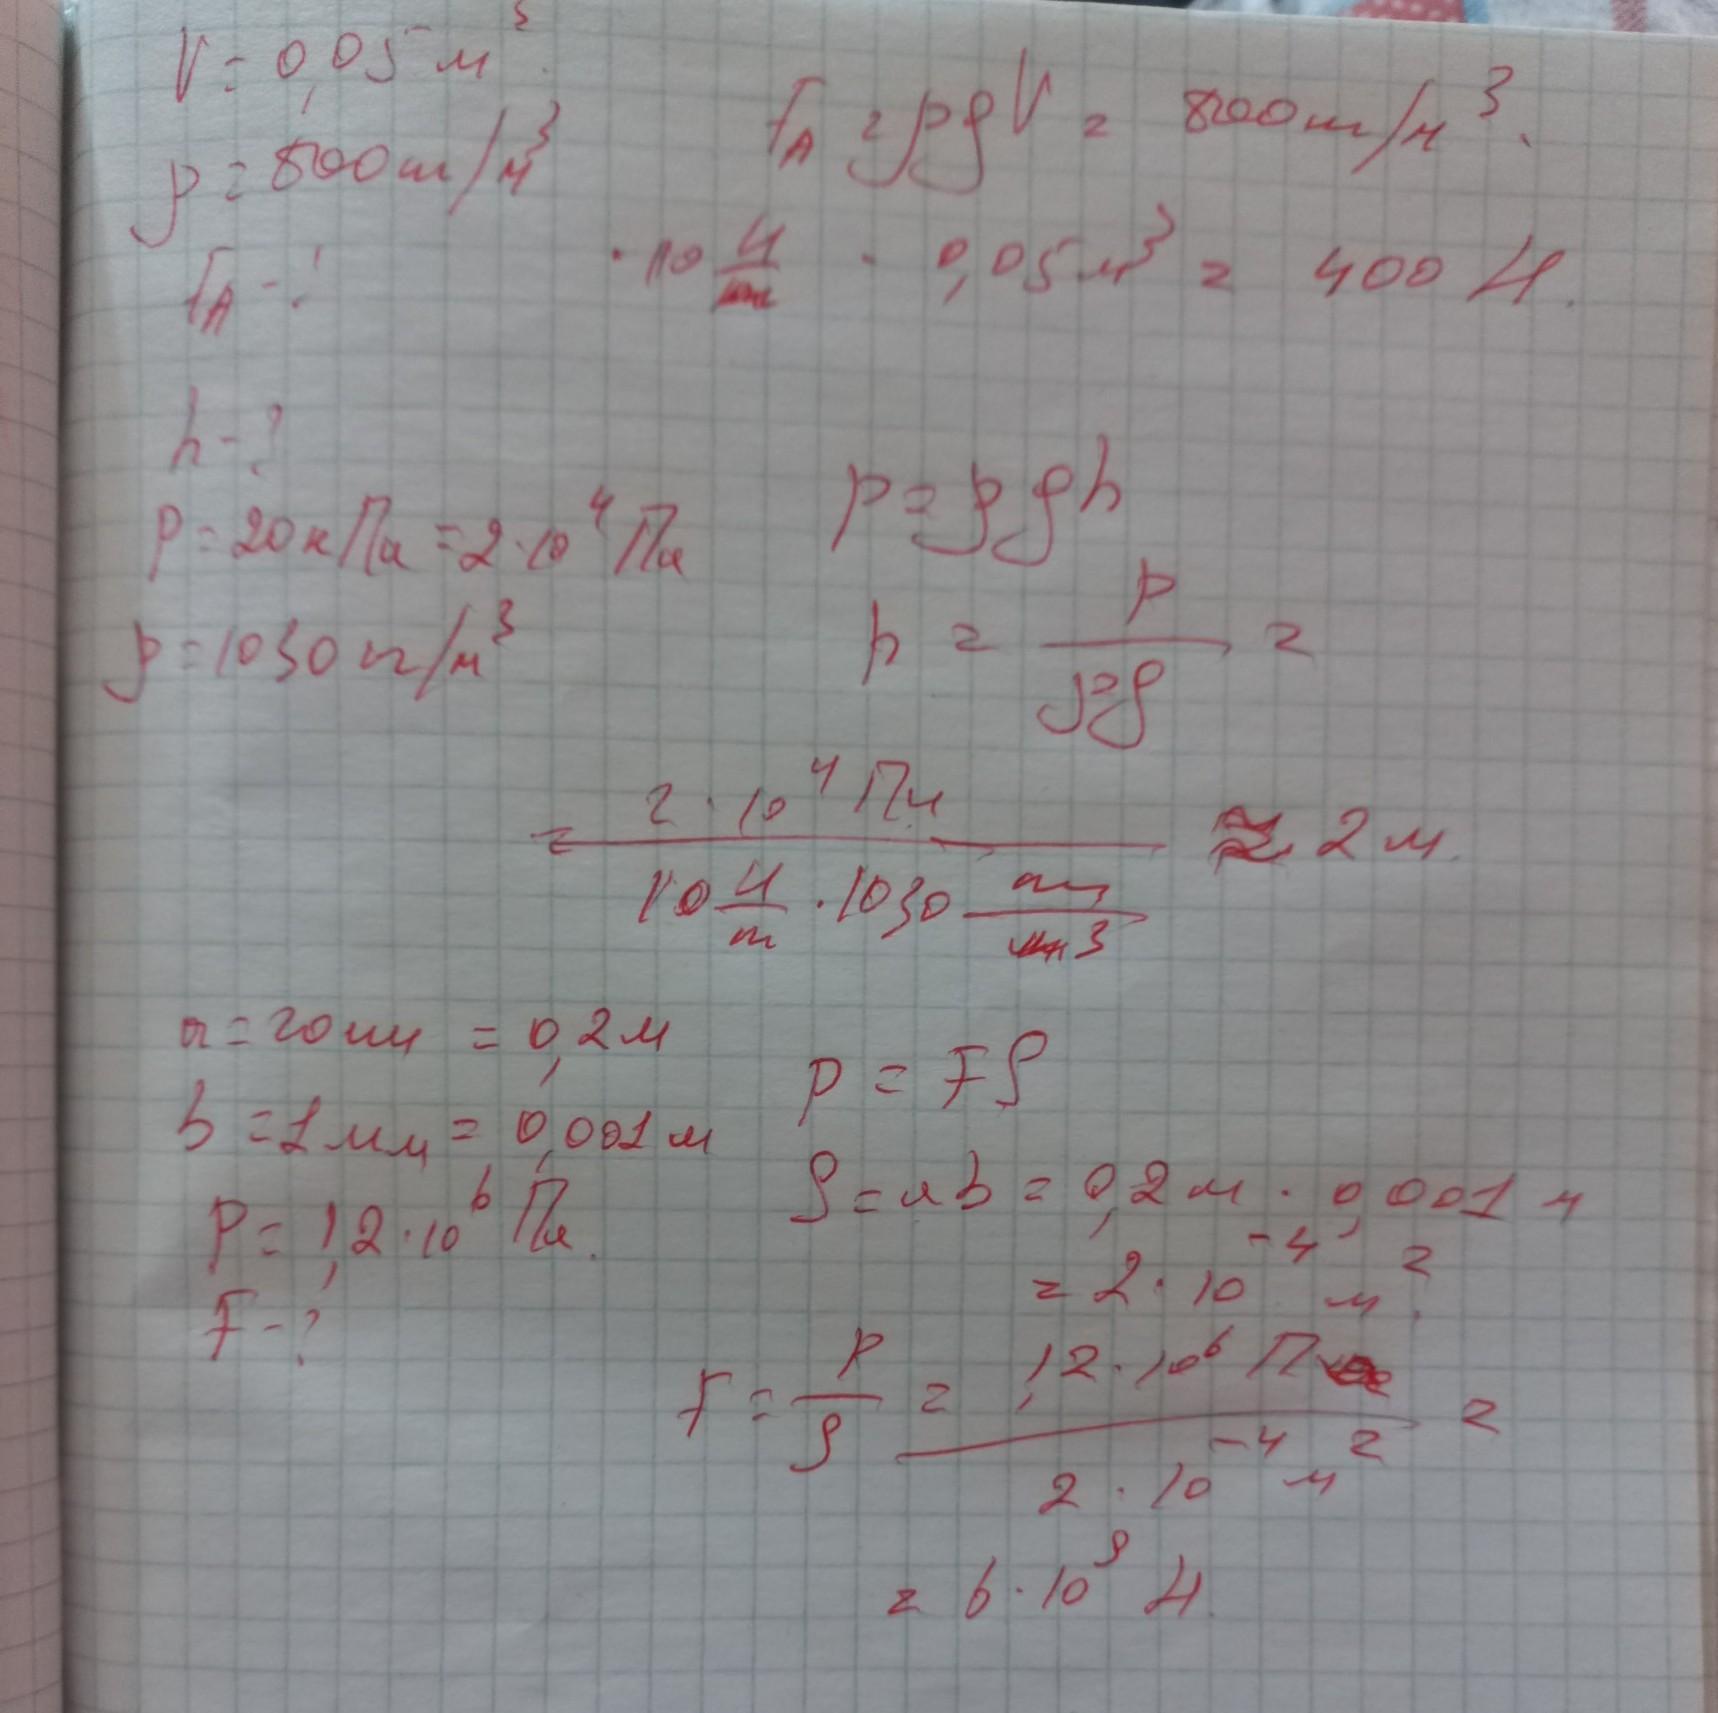 V = 0,05 м³
ρ = 800 кг/м³
F_A - ?
F_A = ρgV = 800 кг/м³ ·
· 10 Н/кг · 0,05 м³ = 400 Н.
h - ?
P = 20 кПа = 2·10⁴ Па
ρ = 1030 кг/м³
p = ρgh
h = p/ρg =
= 2·10⁴ Па / 10 Н/кг · 1030 кг/м³ ≈ 2 м.
a = 20 см = 0,2 м
b = 1 мм = 0,001 м
P = 1,2·10⁶ Па.
F - ?
p = FS
S = ab = 0,2 м · 0,001 м
= 2·10⁻⁴ м².
F = P/S = 1,2·10⁶ Па / 2·10⁻⁴ м² =
= 6·10⁹ Н.